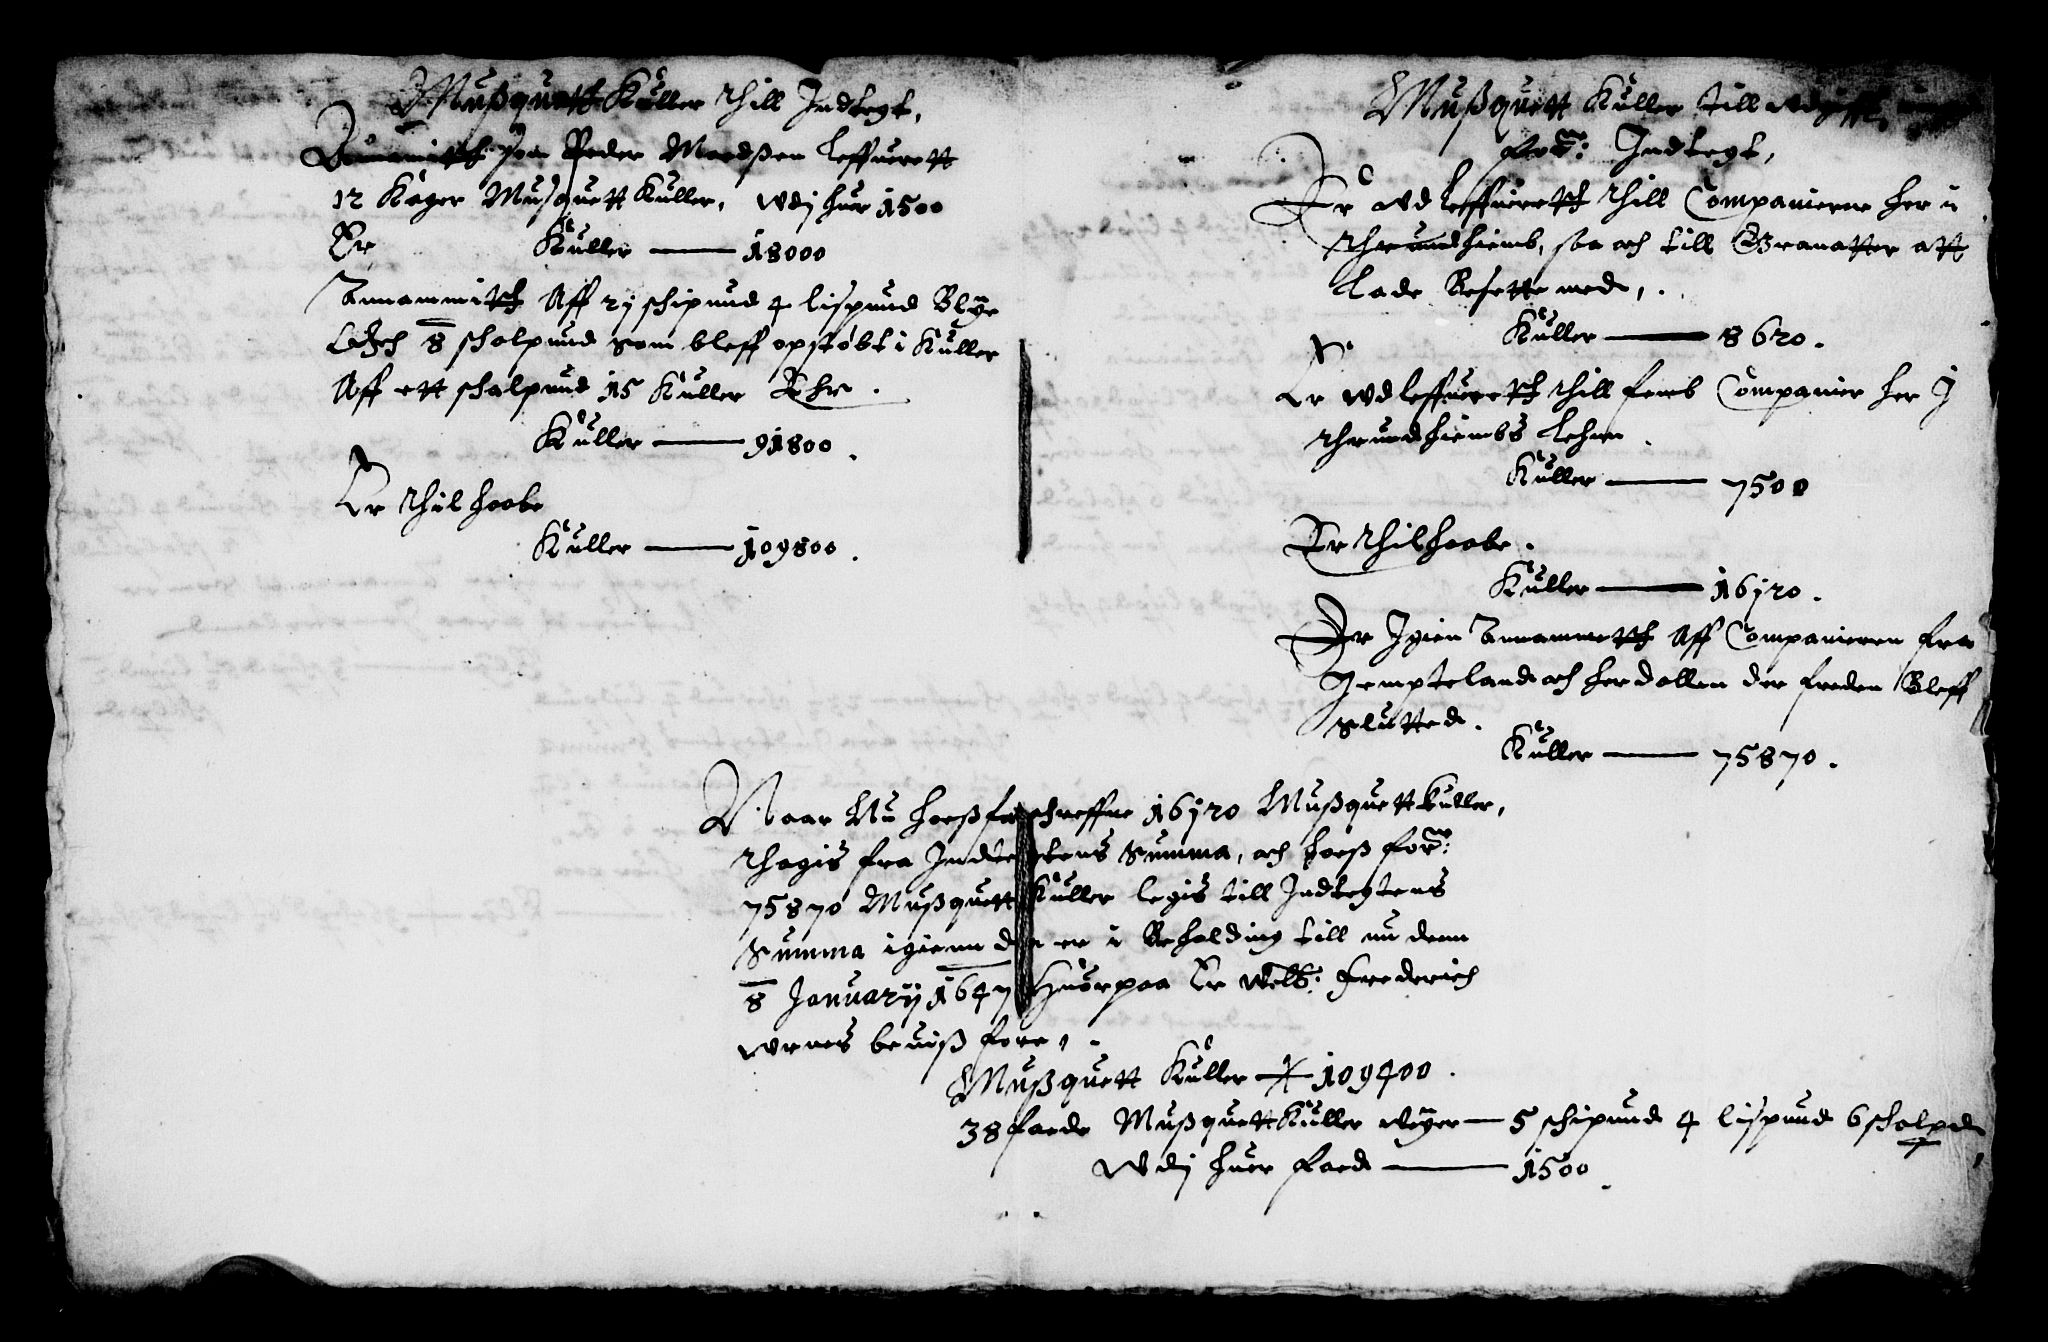 Mußquett Kuller thill Indtegt,
Annamith som Peder Madßen Leffuerett
12 Kager Musquett Kuller, Wdj huer 1500
Er Kuller — 18000
Annammith Aff 21 schipund 4 lispund Blÿe
Och 8 skolpund som bleff opstøbt i Kuller
Aff ett skalpund 15 Kuller Ehr.
Kuller — 91800.
Er thil hoobe
Kuller — 109800.
Mußquett Kuller till Udgifft
for: Indtegt,
Er Udleffuereth thill Companierne her i
thrundhiemb, saa och till Granatter att
Lade Besette med,.
Kuller — 8620.
Er Wdleffuereth thill femb Companier her J
thrundhiembs Lehnn.
Kuller — 7500
Er thilhoobe.
Kuller — 16120.
Er Igien Annammeth Aff Companieren fra
Jempteland och herdallen der freden Bleff
Slutted.
Kuller — 75870.
Naar Nu hoeßforschreffne 16120 Mußquett Kuller,
thagis fra Indtegtens Summa, och hoeß for:
75870 Mußquett Kuller legis till Indtegtens
Summa igienn da er i Beholding till nu denn
8 Januarij 1647 Huorpaa Er Welb: Frederich
Wrnes beuiß fore,.
Mußquett Kuller — 109400.
38 faede Mußquett Kuller weÿer — 5 schipund 4 lispund 6 skolpd
Wdj huer faed — 1500.